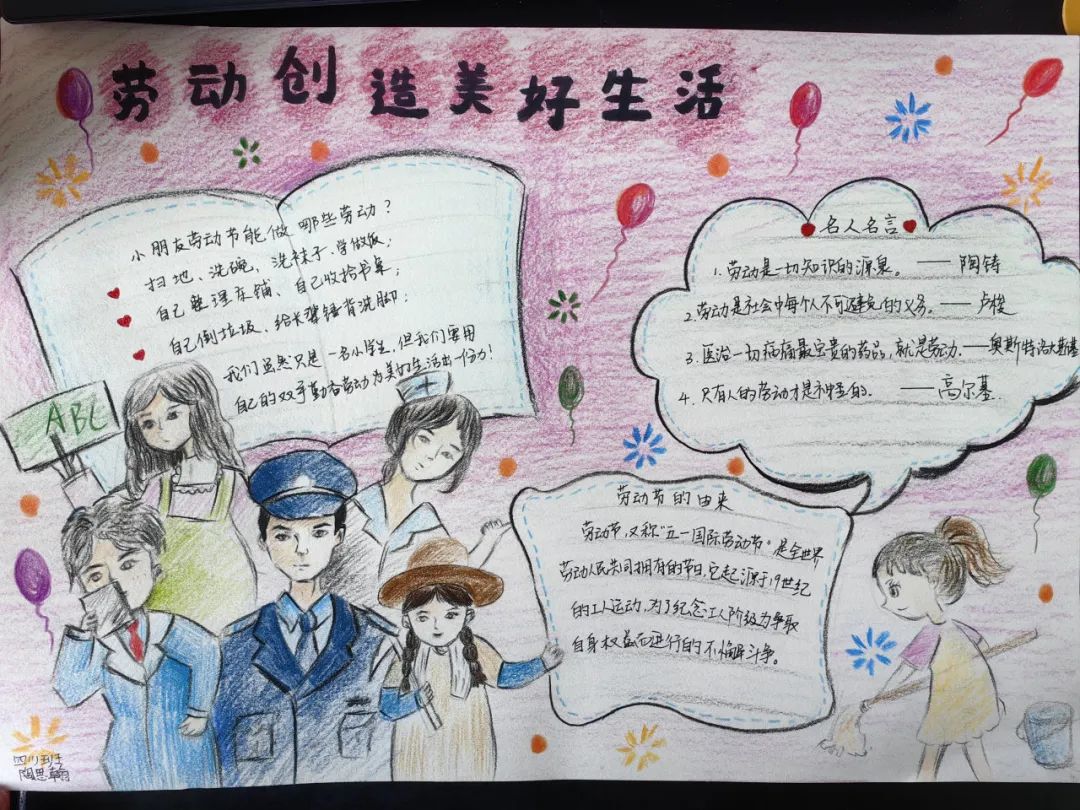 劳动创造美好生活
小朋友劳动节能做哪些劳动？
扫地、洗碗，洗袜子、学做饭；
自己整理床铺、自己收拾书桌；
自己倒垃圾、给长辈锤背洗脚；
我们虽然只是一名小学生，但我们要用
自己的双手勤奋劳动为美好生活出一份力！
名人名言
1.劳动是一切知识的源泉。——陶铸
2.劳动是社会中每个人不可避免的义务。——卢梭
3.医治一切病痛最宝贵的药品，就是劳动.——奥斯特洛夫斯基
4.只有人的劳动才是神圣的.——高尔基.
ABC
劳动节的由来
劳动节,又称“五一国际劳动节”是全世界
劳动人民共同拥有的节日,它起源于19世纪
的工人运动,为了纪念工人阶级为争取
自身权益而进行的不懈斗争。
陶思翰